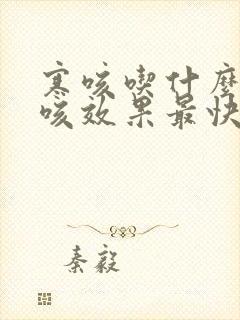 寒咳喫什麼
咳效果最快
秦毅